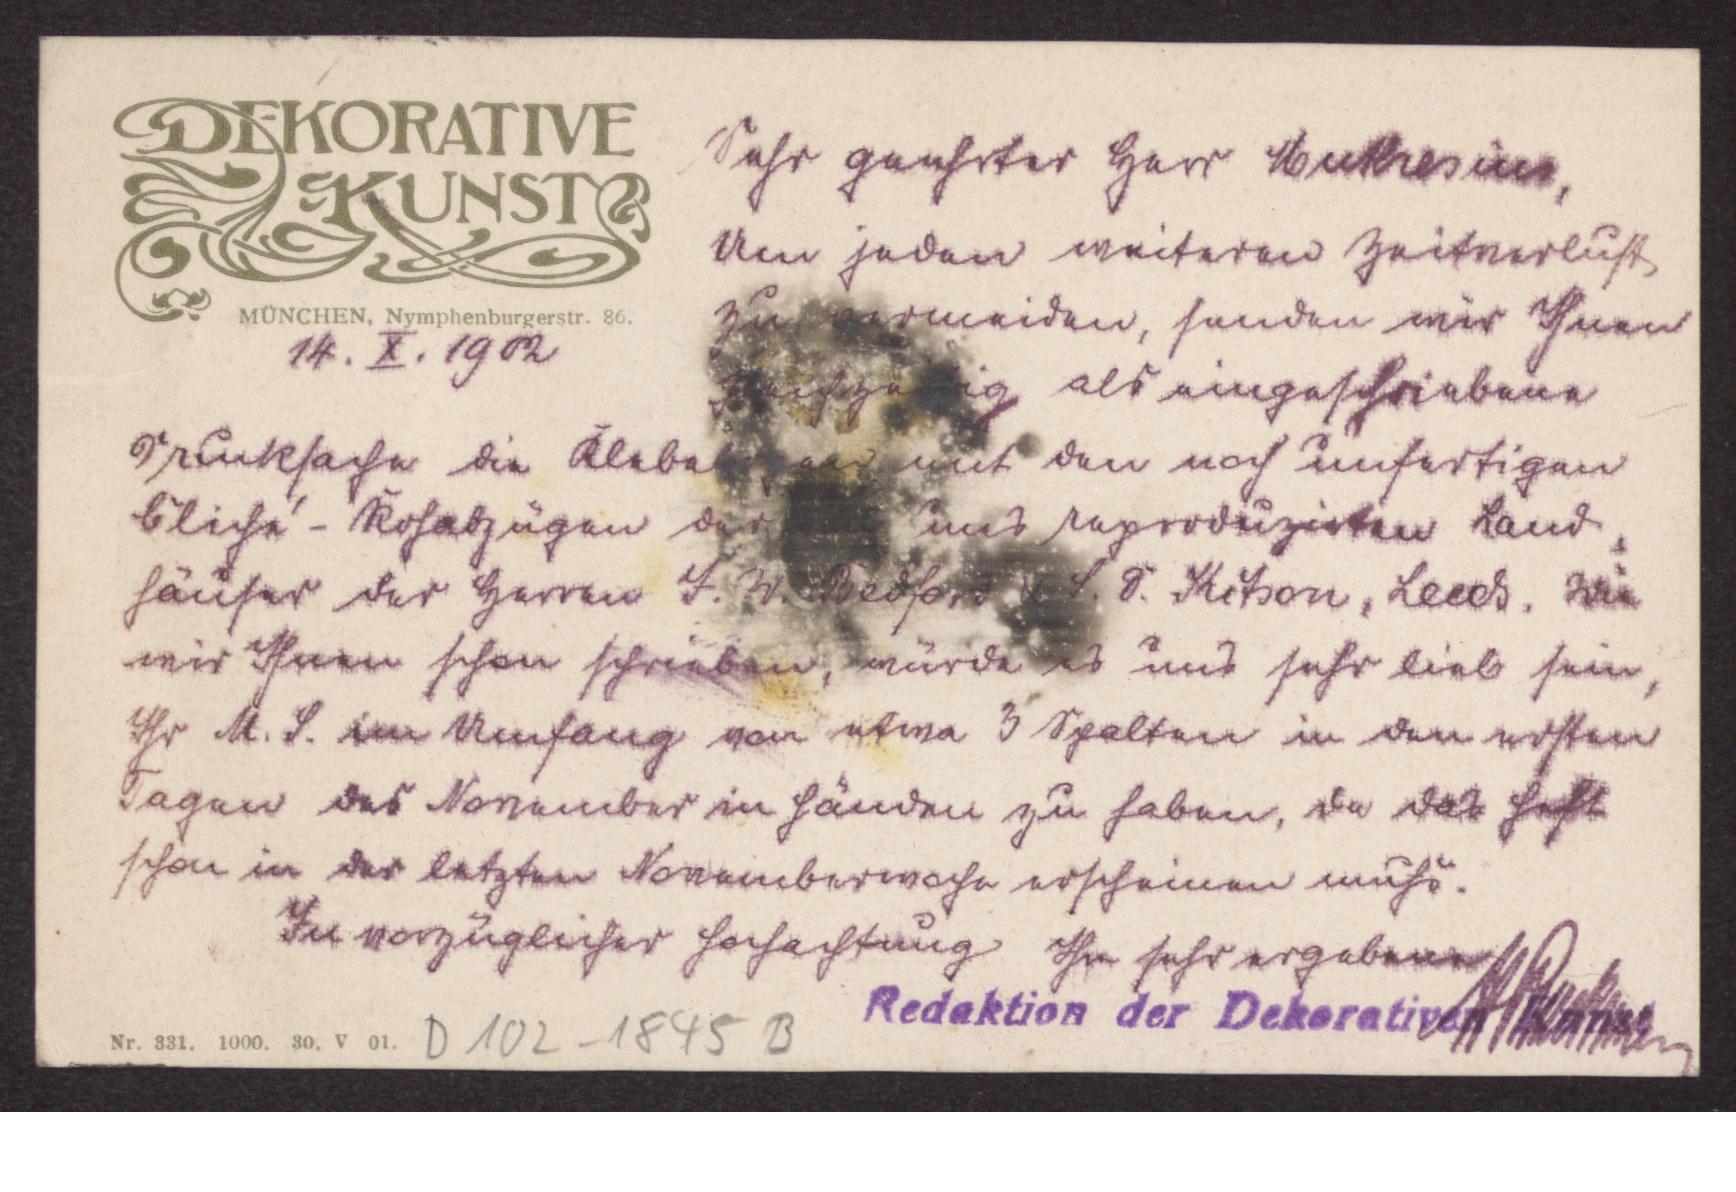 DEKORATIVE
KUNST
MÜNCHEN, Nymphenburgerstr. 86.
14. X. 1902
Sehr geehrter Herr Muthesius,
Um jeden weiteren Zeitverlust
zu vermeiden, senden wir Ihnen
als eingeschriebene
Drucksache die mit den noch unfertigen
Cliché-Rohabzügen der uns reproduzirten Land
häuser der Herren F. W. Bedford & S. D. Kitson, Leeds. Wie
wir Ihnen schon schrieben, würde es uns sehr lieb sein,
Ihr M. S. im Umfang von etwa 3 Spalten in den ersten
Tagen des November in Händen zu haben, da das Heft
schon in der letzten Novemberwoche erscheinen muß.
In vorzüglicher Hochachtung Ihr sehr ergebener
Redaktion der Dekorativen Kunst
Nr. 331. 1000. 30. V 01. D 102-1845 B